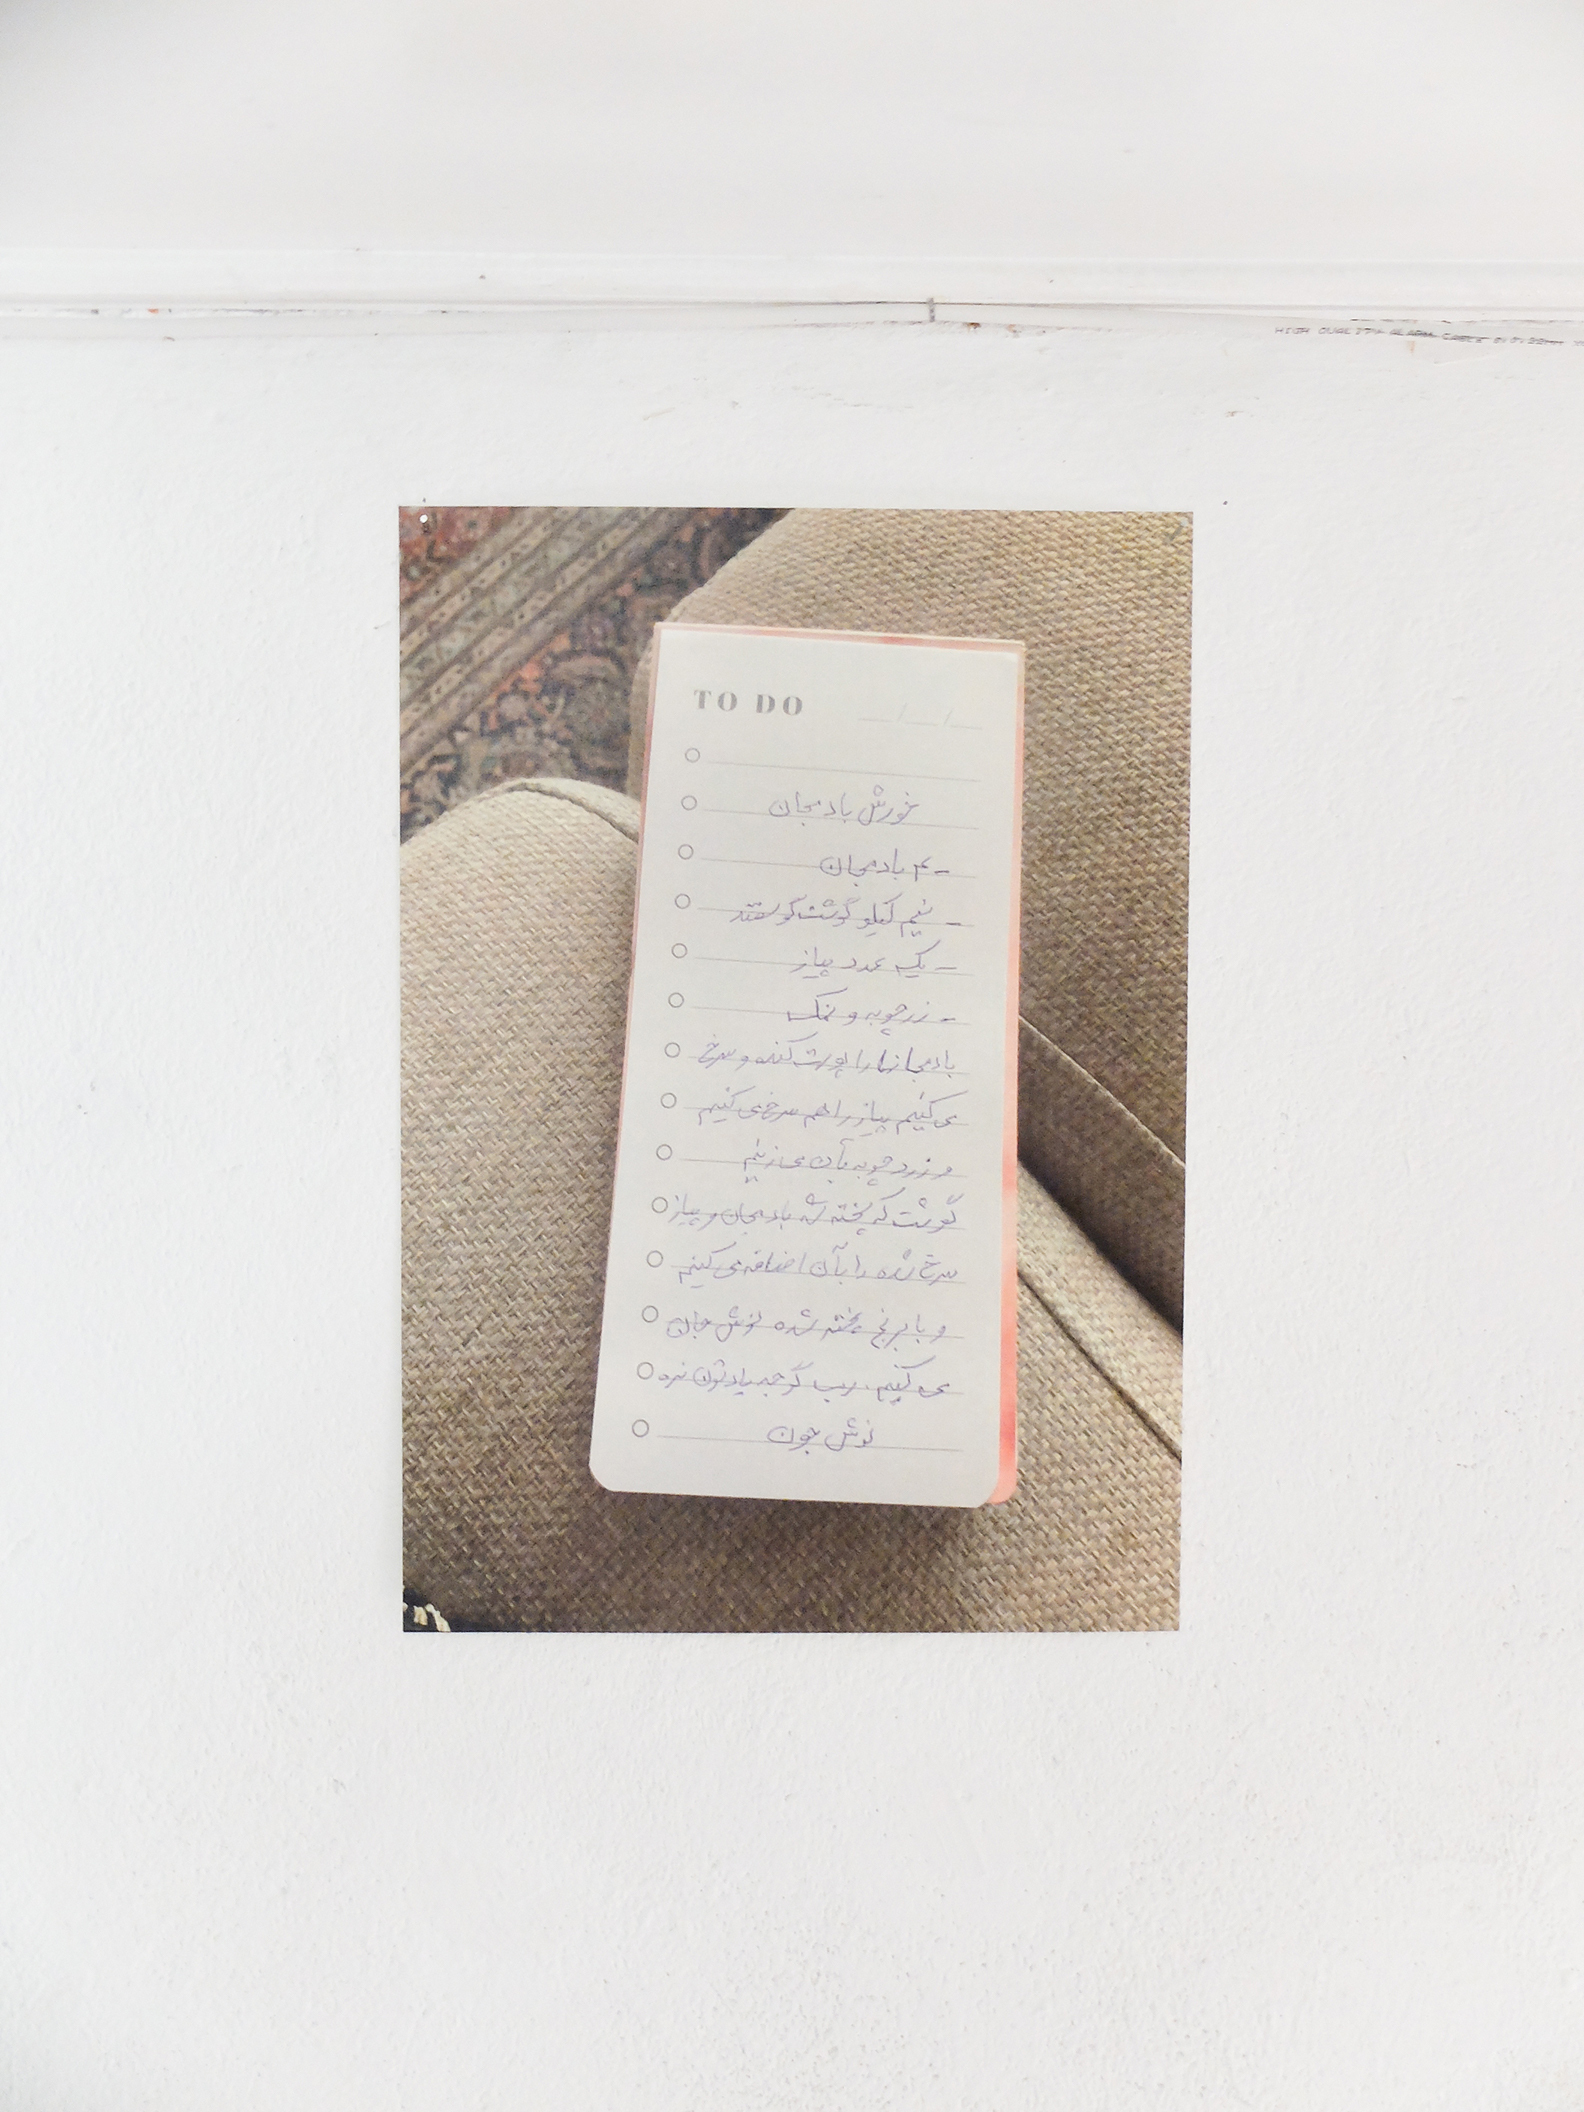 HIGH QUALITY ALARM CABLE
TO DO
خورش بادمجان
- ۴ بادمجان
- نیم کیلو گوشت گوسفند
- یک عدد پیاز
- زردچوبه و نمک
بادمجانها را پوست کنده و سرخ
می کنیم پیاز را هم سرخ می کنیم
و زردچوبه بآن می زنیم
گوشت که پخته شد بادمجان و پیاز
سرخ شده را بآن اضافه می کنیم
و با برنج پخته شده نوش جان
می کنیم، رب گوجه یادتون نره
نوش جون